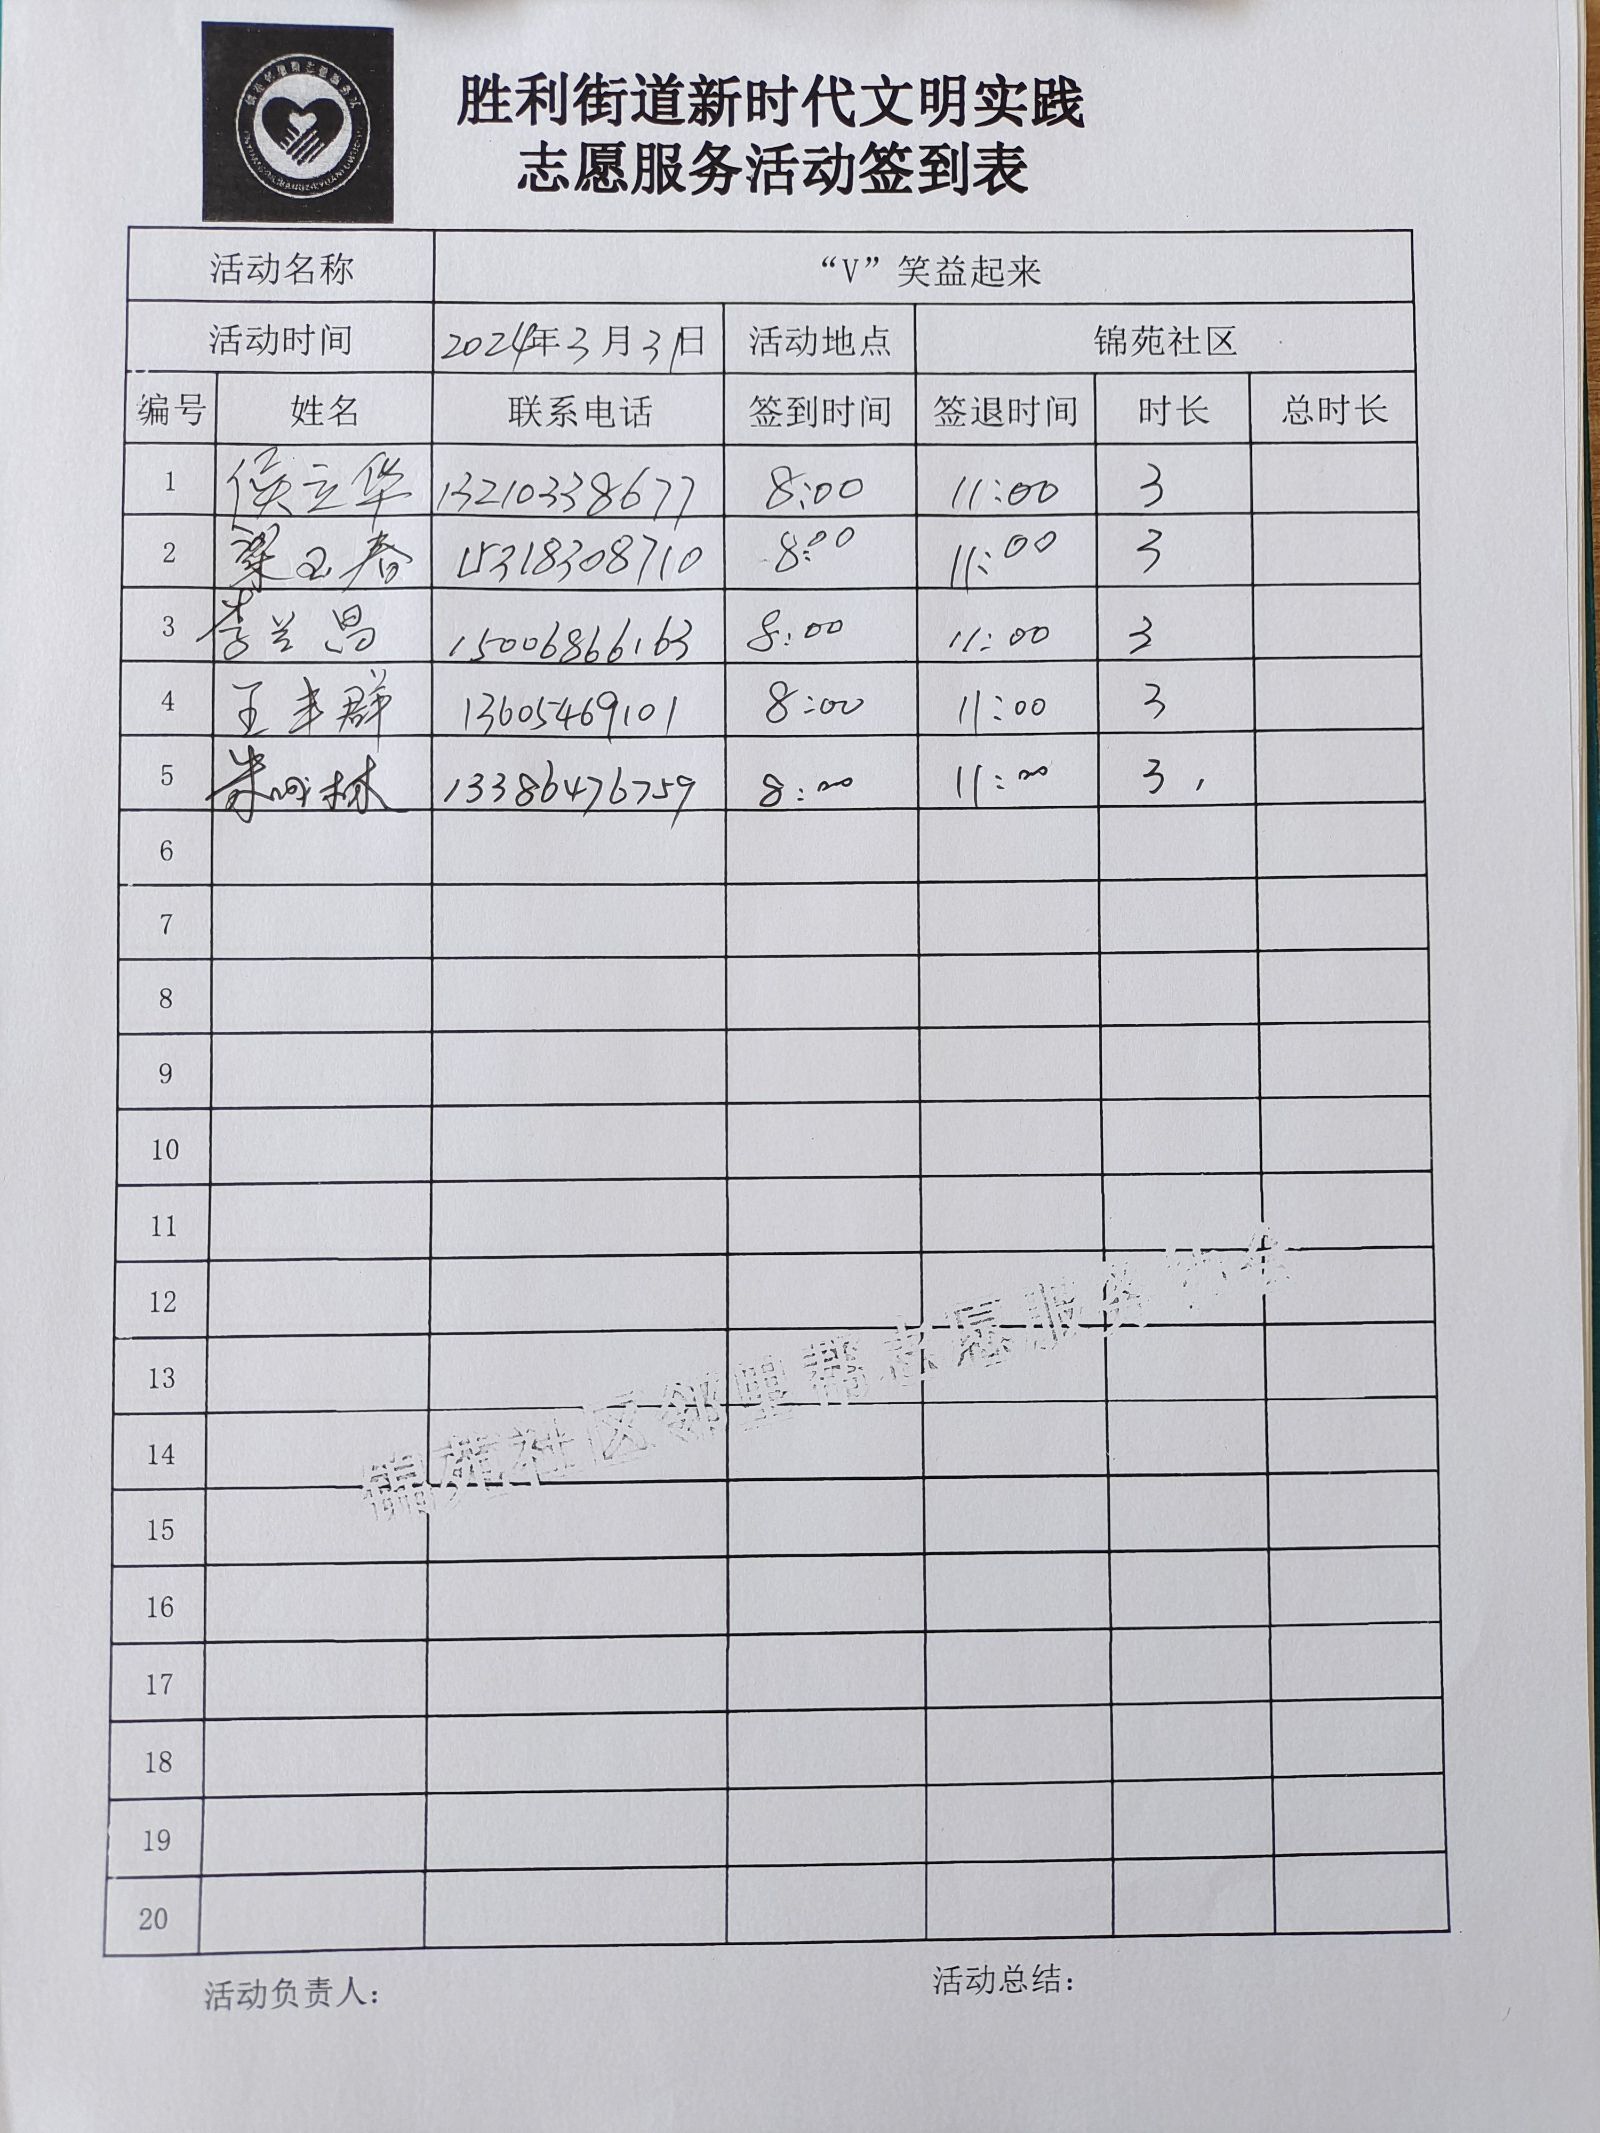 胜利街道新时代文明实践
志愿服务活动签到表
活动名称 “V”笑益起来
活动时间 2024年3月31日 活动地点 锦苑社区
编号 姓名 联系电话 签到时间 签退时间 时长 总时长
1 侯立华 13210338677 8:00 11:00 3
2 梁玉春 15318308710 8:00 11:00 3
3 李兰昌 15006866163 8:00 11:00 3
4 王丰群 13605469101 8:00 11:00 3
5 朱林 13386476759 8:00 11:00 3,
6
7
8
9
10
11
12
13
锦苑社区邻里帮志愿服务协会
14
15
16
17
18
19
20
活动负责人: 活动总结: